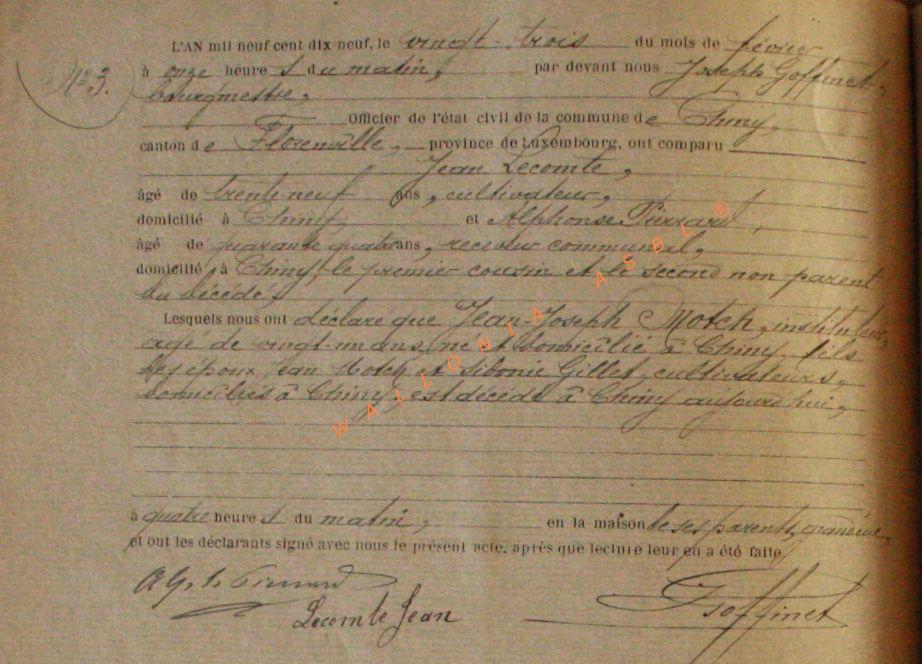 L'AN mil neuf cent dix neuf, le vingt-trois du mois de février
N° 3. à onze heures du matin, par devant nous Joseph Goffinet,
bourgmestre,
Officier de l'état civil de la commune de Chiny,
canton de Florenville, province de Luxembourg, ont comparu
Jean Lecomte,
âgé de trente-neuf ans, cultivateur,
domicilié à Chiny et Alphonse Pierrard,
âgé de quarante quatre ans, receveur communal,
domicilié à Chiny, le premier cousin et le second non parent
du décédé,
Lesquels nous ont déclaré que Jean-Joseph Motch, instituteur,
âgé de vingt-un ans, né et domicilié à Chiny, fils
des époux Jean Motch et Sidonie Gillet, cultivateurs,
domiciliés à Chiny, est décédé à Chiny aujourd'hui,
à quatre heures du matin, en la maison de ses parents,
et ont les déclarants signé avec nous le présent acte, après que lecture leur en a été faite.
Lecomte Jean
Goffinet
WALLONIA ASBL ©